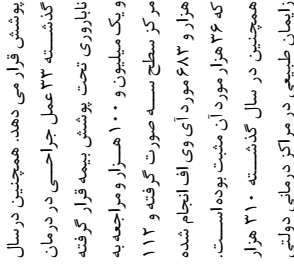 پوشش قرار می دهد. همچنین در سال
گذشته ۳۳ عمل جراحی در درمان
ناباروری تحت پوشش بیمه قرار گرفته
و یک میلیون و ۱۰۰ هزار و مراجعه به
مرکز سطح سه صورت گرفته و ۱۱۲
هزار و ۶۸۳ مورد آی وی اف انجام شده
که ۳۶ هزار مورد آن مثبت بوده است.
همچنین در سال گذشته ۳۱۰ هزار
زایمان طبیعی در مراکز درمانی دولتی